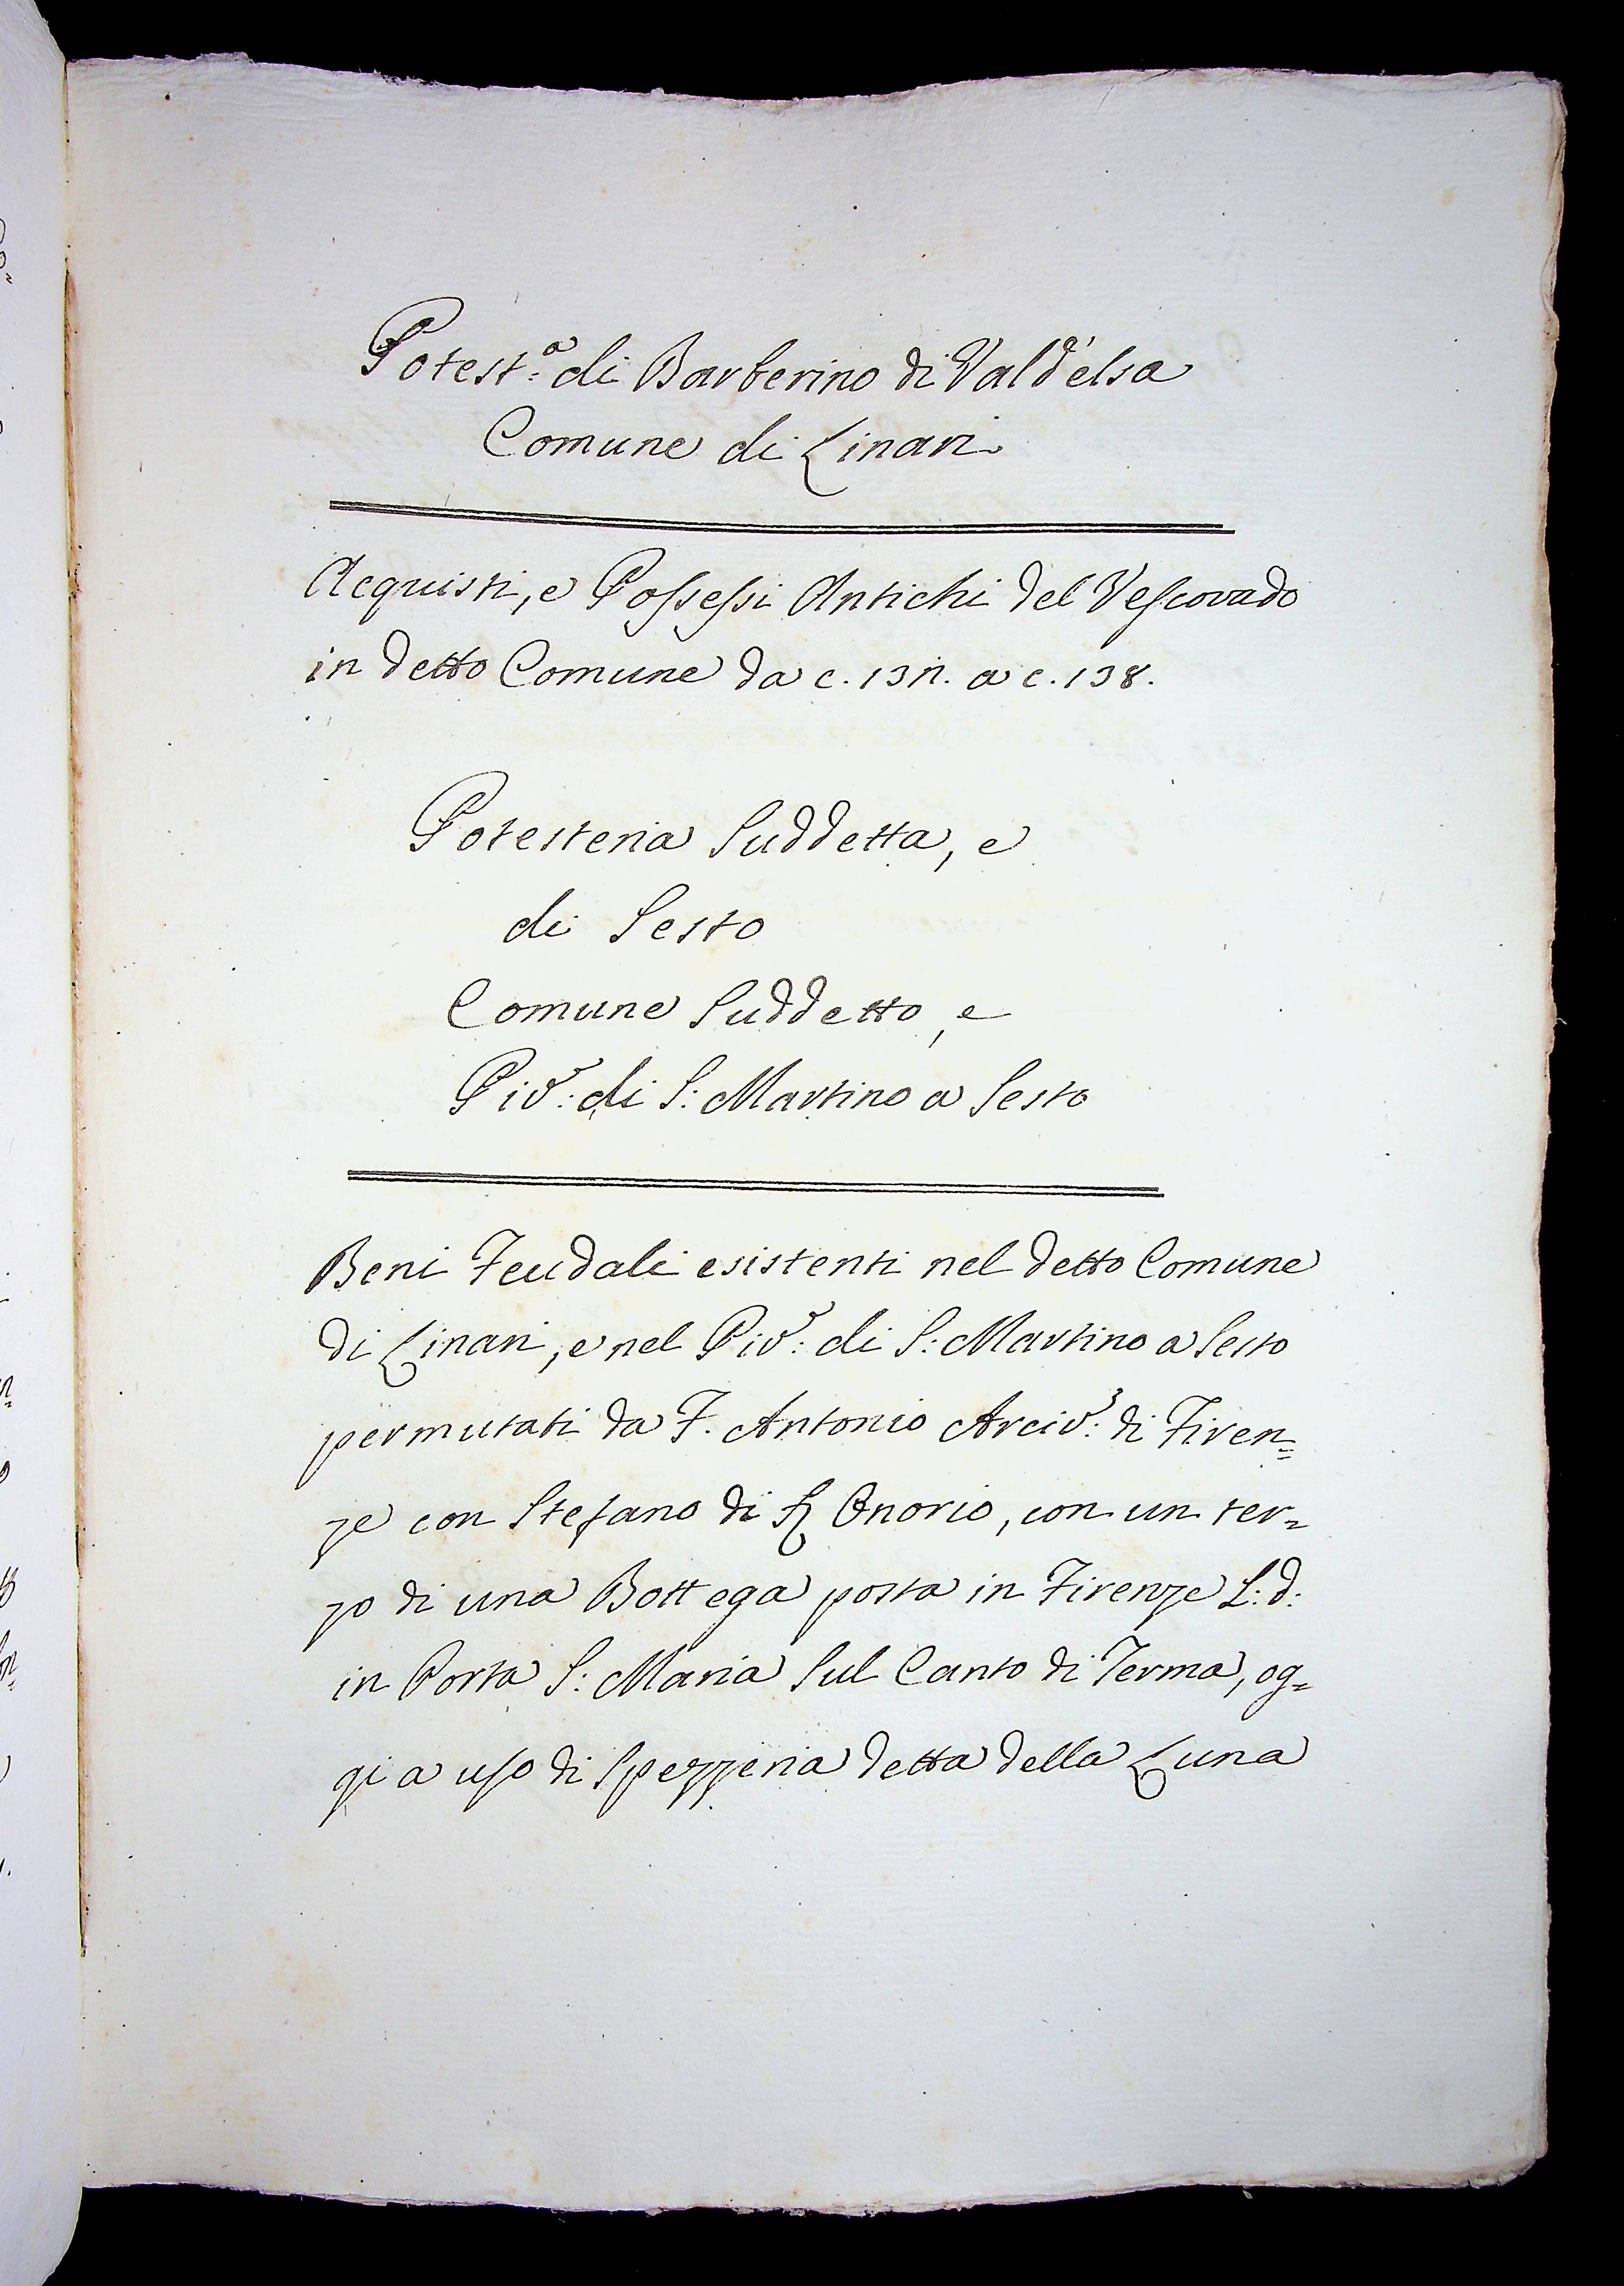 Potest.ª di Barberino di Vald'elsa
Comune di Linari
Acquisti, e Possessi Antichi del Vescovado
in detto Comune da c. 137. a c. 138.
Potesteria Suddetta, e
di Sesto
Comune Suddetto, e
Piv.º: di S: Martino a Sesto
Beni Feudali esistenti nel detto Comune
di Linari, e nel Piv.º: di S: Martino a Sesto
permutati da F. Antonio Arciv.º: di Firen=
ze con Stefano di Onorio, con un ter=
zo di una Bottega posta in Firenze L: d:
in Porta S: Maria sul Canto di Terma, og=
gi a uso di Spezzeria detta della Luna